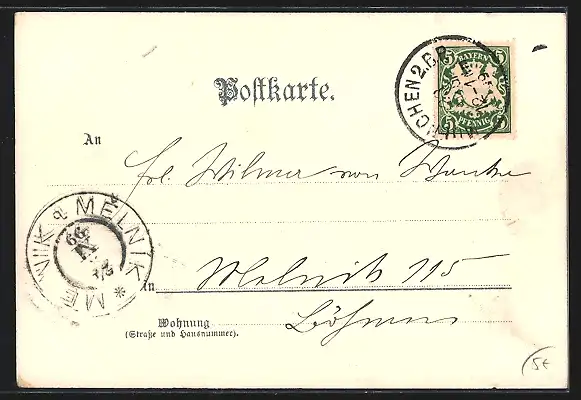 Postkarte.
5 BAYERN 5
5 PFENNIG 5
MÜNCHEN 2. B.P.
An
Frl. Wilma von
MĚLNIK a MELNIK *
99
in Melnik 115
Wohnung
(Straße und Hausnummer).
Böhmen
5E